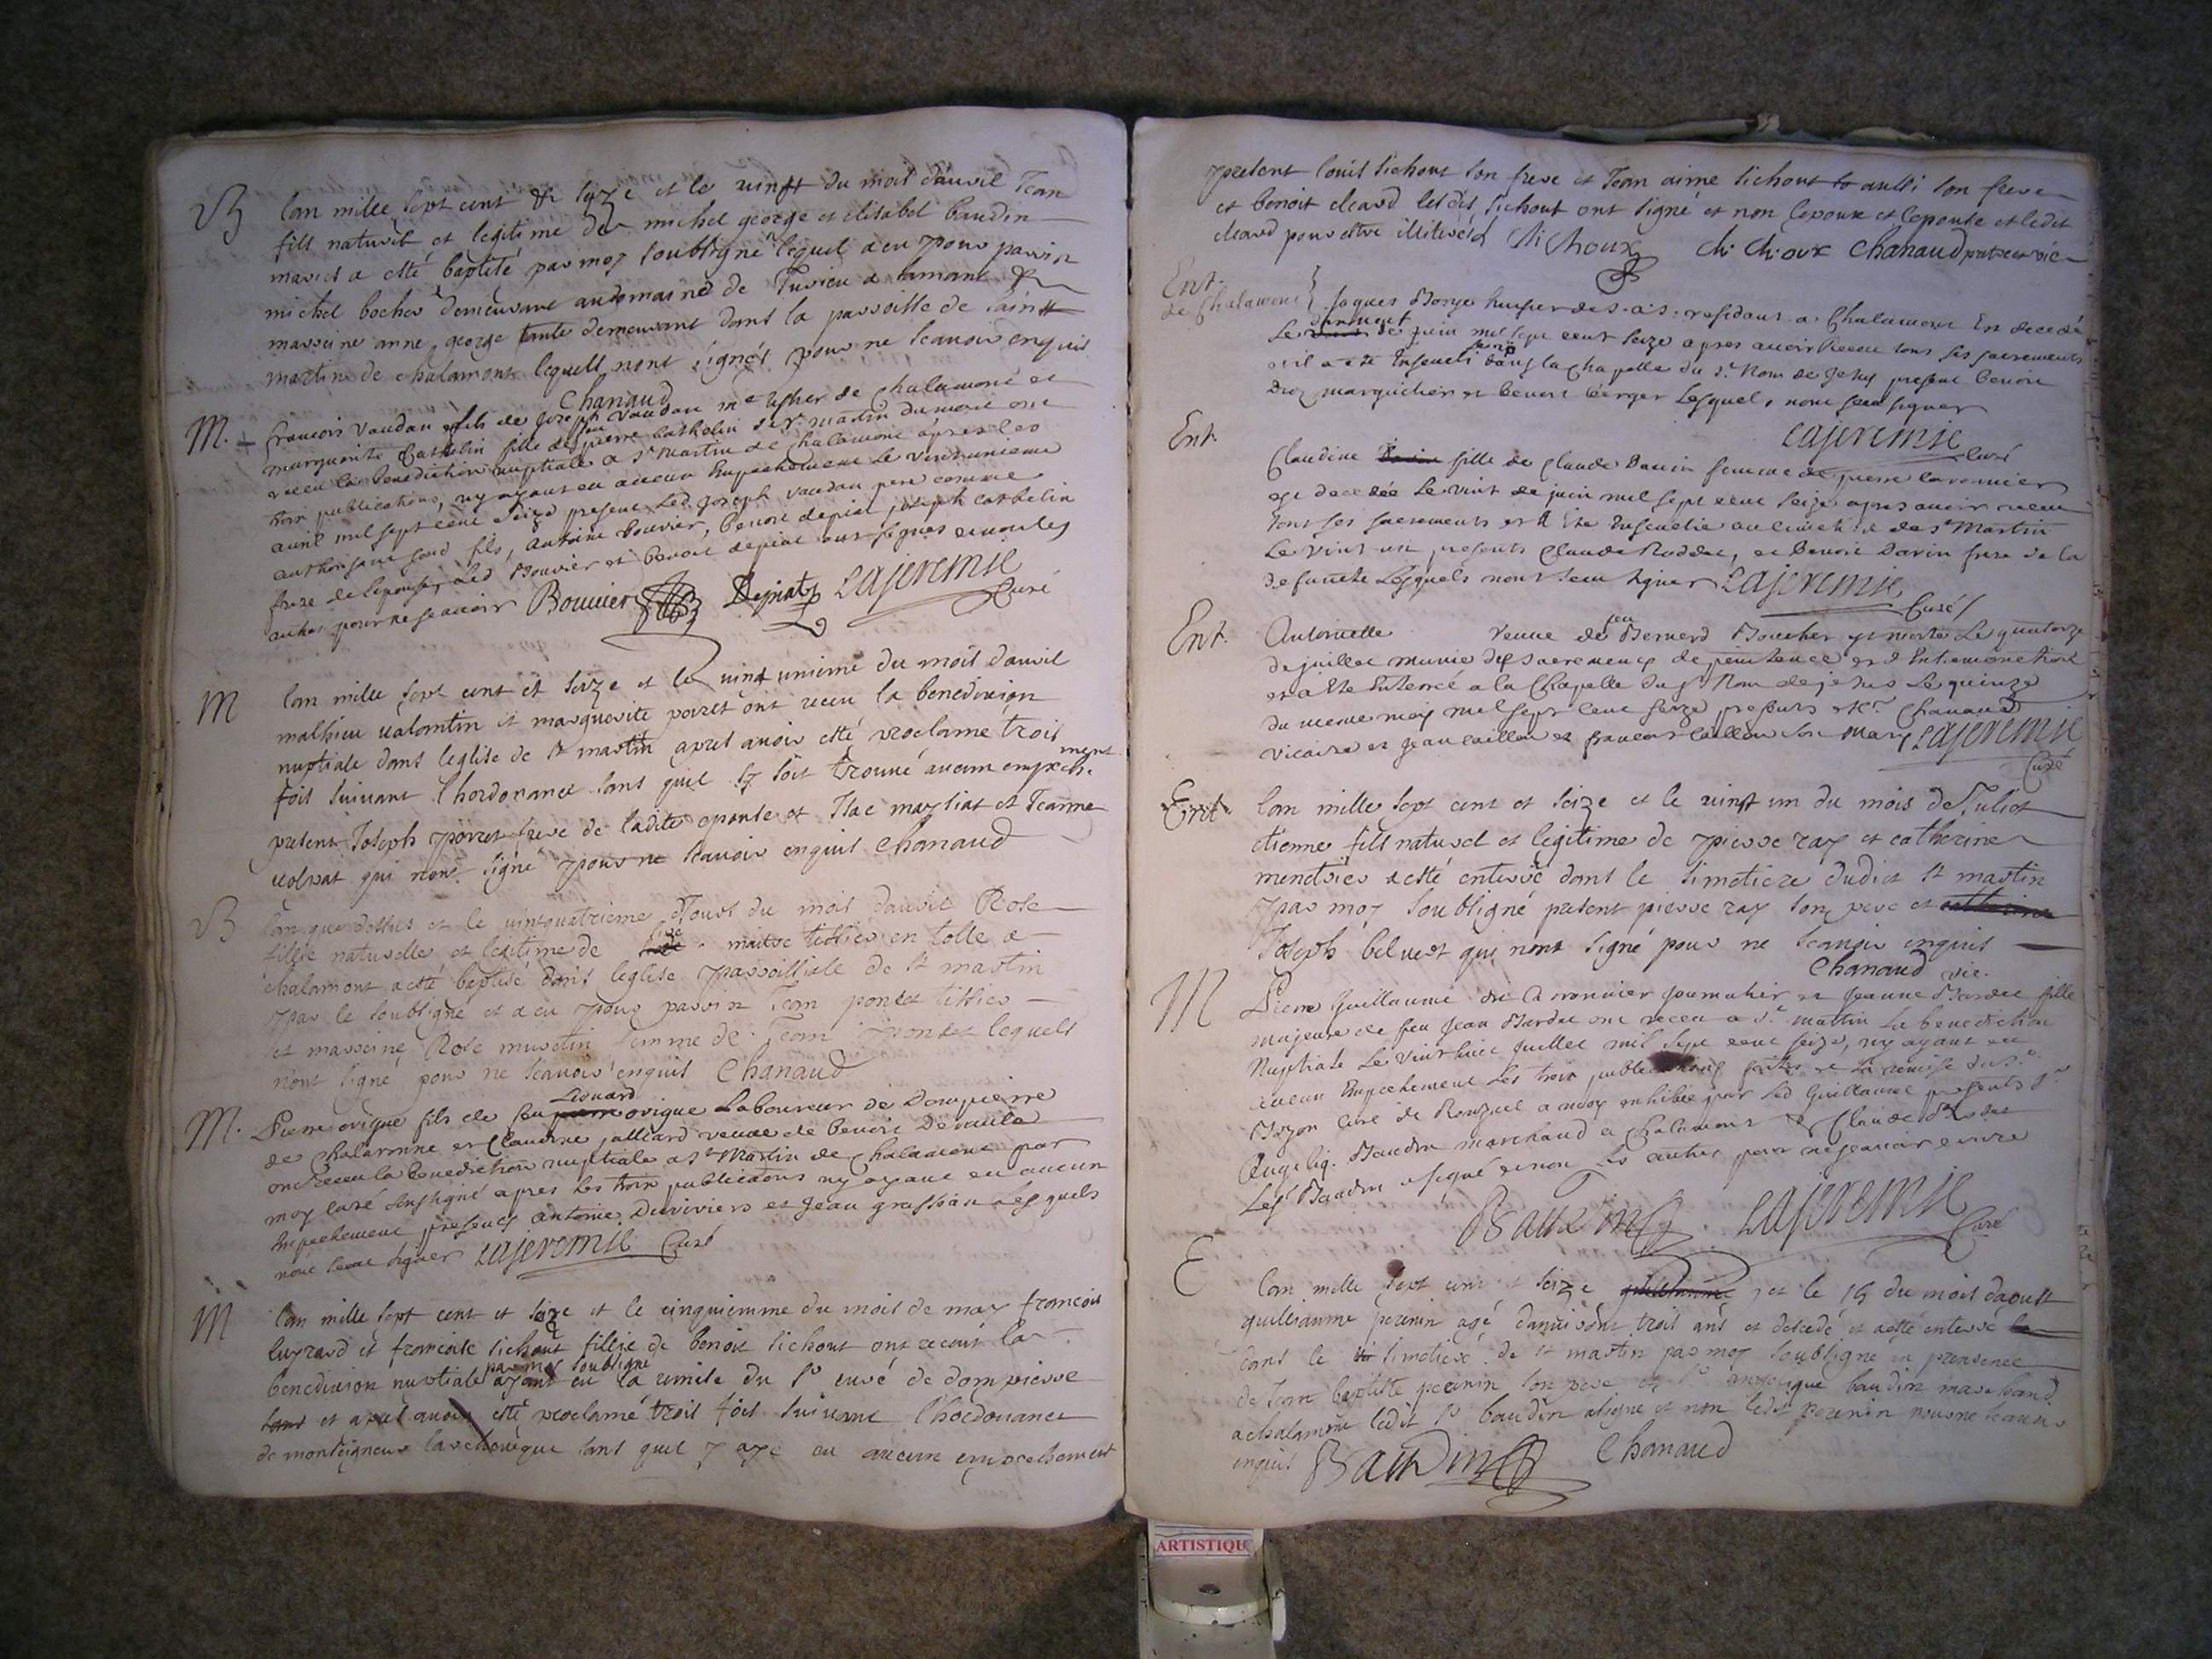 B
lan mille sept cent & seze et le vinft du mois dauvil Jean
fils naturel et legitime de michel george et elisabet baudin
mariés a esté baptisé par moy soubsigné lequel a eu pour parrin
michel bocher demeurant au domaine de
marreine anne george tante demeurant dans la parroisse de saint
martin de chalamont lequels nont signés pour ne scavoir enquis
Chanaud
M.
francois vaudan fils de Joseph vaudan me de Chalamont et
marguerite Cathelin fille de feu pierre Cathelin de st martin dumont ont
receu la Benediction nuptiale a st martin de Chalamont apres les
trois publications, ny ayant eu aucun Empechement Le vint unieme
avril mil sept cent Seize present Led Joseph vaudan pere comme
authorisant sond fils, Antoine Bouvier, benoit depiat joseph Cathelin
frere de lepouse, Led Bouvier et benoit depiat ont signes et non les
autres pour ne scavoir Bouvier Depiat LAJEREMIE
Curé
M
lan mille sept cent et seize et le vint unieme du mois dauvil
mathieu valantin et marguerite poiret ont receu la benediction
nuptiale dans leglise de st martin apres avoir esté proclame trois
fois suivant lhordonance sans quil sy soit trouvé aucun empeche
ment
present Joseph poiret frere de ladite epouse et Isac mayliat et Jeanne
volpat qui nont signé pour ne scavoir enquis Chanaud
B
lan que dessus et le vintquatrieme Jour du mois dauvil Rose
fillie naturelle et legitime de maitre tissier en tolle a
chalamont a esté baptisé dans leglise parroissiale de st martin
par le soubsigné et a eu pour parrin Jean ponset tissier
et marreine Rose musetin femme de Jean ponset lequels
nont signé pour ne scavoir enquis Chanaud
M.
Lienard
Pierre ovigue fils de feu pierre ovigue Laboureur de Dompierre
de Chalaronne et Claudine jalliard veuve de Benoit
ont receu la benediction nuptiale a st Martin de Chalamont par
moy curé soussigné apres les trois publications ny ayant eu aucun
Empechement presents antoine Duviviers et Jean grassian Lesquels
nont sceu signer LAJEREMIE Curé
M
lan mille sept cent et seize et le cinquiemme du mois de may francois
luyrard et francoise sichout fillie de benoit sichout ont receut la
par moy soubsigne
benediction nuptiale ayant eu la remise du sr curé de dompierre
sans et apres avoir esté proclamé trois fois suivant lhordonance
de monseigneur larchevéque sans quil y aye eu aucun empeschement
present louis sichout son frere et Jean aime sichout aussi son frere
et benoit cleard lesdits sichout ont signé et non lepoux et lepouse et ledit
cleard pour estre illiterés Chichoux Chichoux Chanaud pretre et vic
Ent.
de Chalamont
Jaques Borge huissier des a:s: residant a Chalamont Est decedé
dernier
Le de juin mil sept cent seize apres avoir Receu tous ses sacrements
et il a ete Enseveli dans la Chapelle du st Nom de Jesus present benoit
Droz marguelier et benoit berger Lesquels nont sceu signer
LAJEREMIE Curé
Ent.
Claudine fille de Claude Davin femme de pierre lavonnier
est decedée Le vint de juin mil sept cent seize apres avoir receu
tous ses sacrements et a Ete Ensevelie au Cimetiere de st Martin
Le vint un presents Claude Roddet, et Benoit Davin frere de la
defuncte Lesquels nont sceu signer LAJEREMIE
Curé
Ent.
Antoinette veuve de feu Bernard Boucher est morte Le quatorze
de juillet munie des sacrements de penitence et d Extremonction
et a Ete Enterreé a la Chapelle du st Nom de jesus Le quinze
du meme mois mil sept cent seize presents Mr Chanaud
vicaire et Jean caillou et francois caillou son mary LAJEREMIE
Curé
Ent.
lan mille sept cent et seize et le vinft un du mois de Juliet
etienne fils naturel et legitime de pierre ray et catherine
menetrier a esté enterré dans le simetiere dudict st martin
par moy soubsigné present pierre ray son pere et
Joseph beluert qui nont signé pour ne scavoir enquis
Chanaud vic.
M
Pierre Guillaume journalier et Jeanne Bardet fille
majeure de feu Jean Bardet ont receu a st martin La benediction
Nuptiale Le vint huit Juillet mil sept cent seize, ny ayant eu
aucun Empechement Les trois publications faites et La remise du sr
Bozon curé de Ronzuel a moy exhibée par Led Guillaume presents sr
Angeliq. Baudin marchand a Chalamont & Claude
Led Baudin a signé et non Les autres pour ne scavoir ecrire
BAUDIN LAJEREMIE
Curé
E
lan mille sept cent et seize guillaume et le 15 du mois daoust
guilliaume perinin agé danviront trois ans et decedé et a esté enterré
dans le simetiere de st martin par moy soubsigne en presence
de Jean baptiste perinin son pere et sr angelique baudin marchand
a chalamont ledit sr baudin a signe et non ledit perinin pour ne scavoir
enquis BAUDIN Chanaud
ARTISTIQU